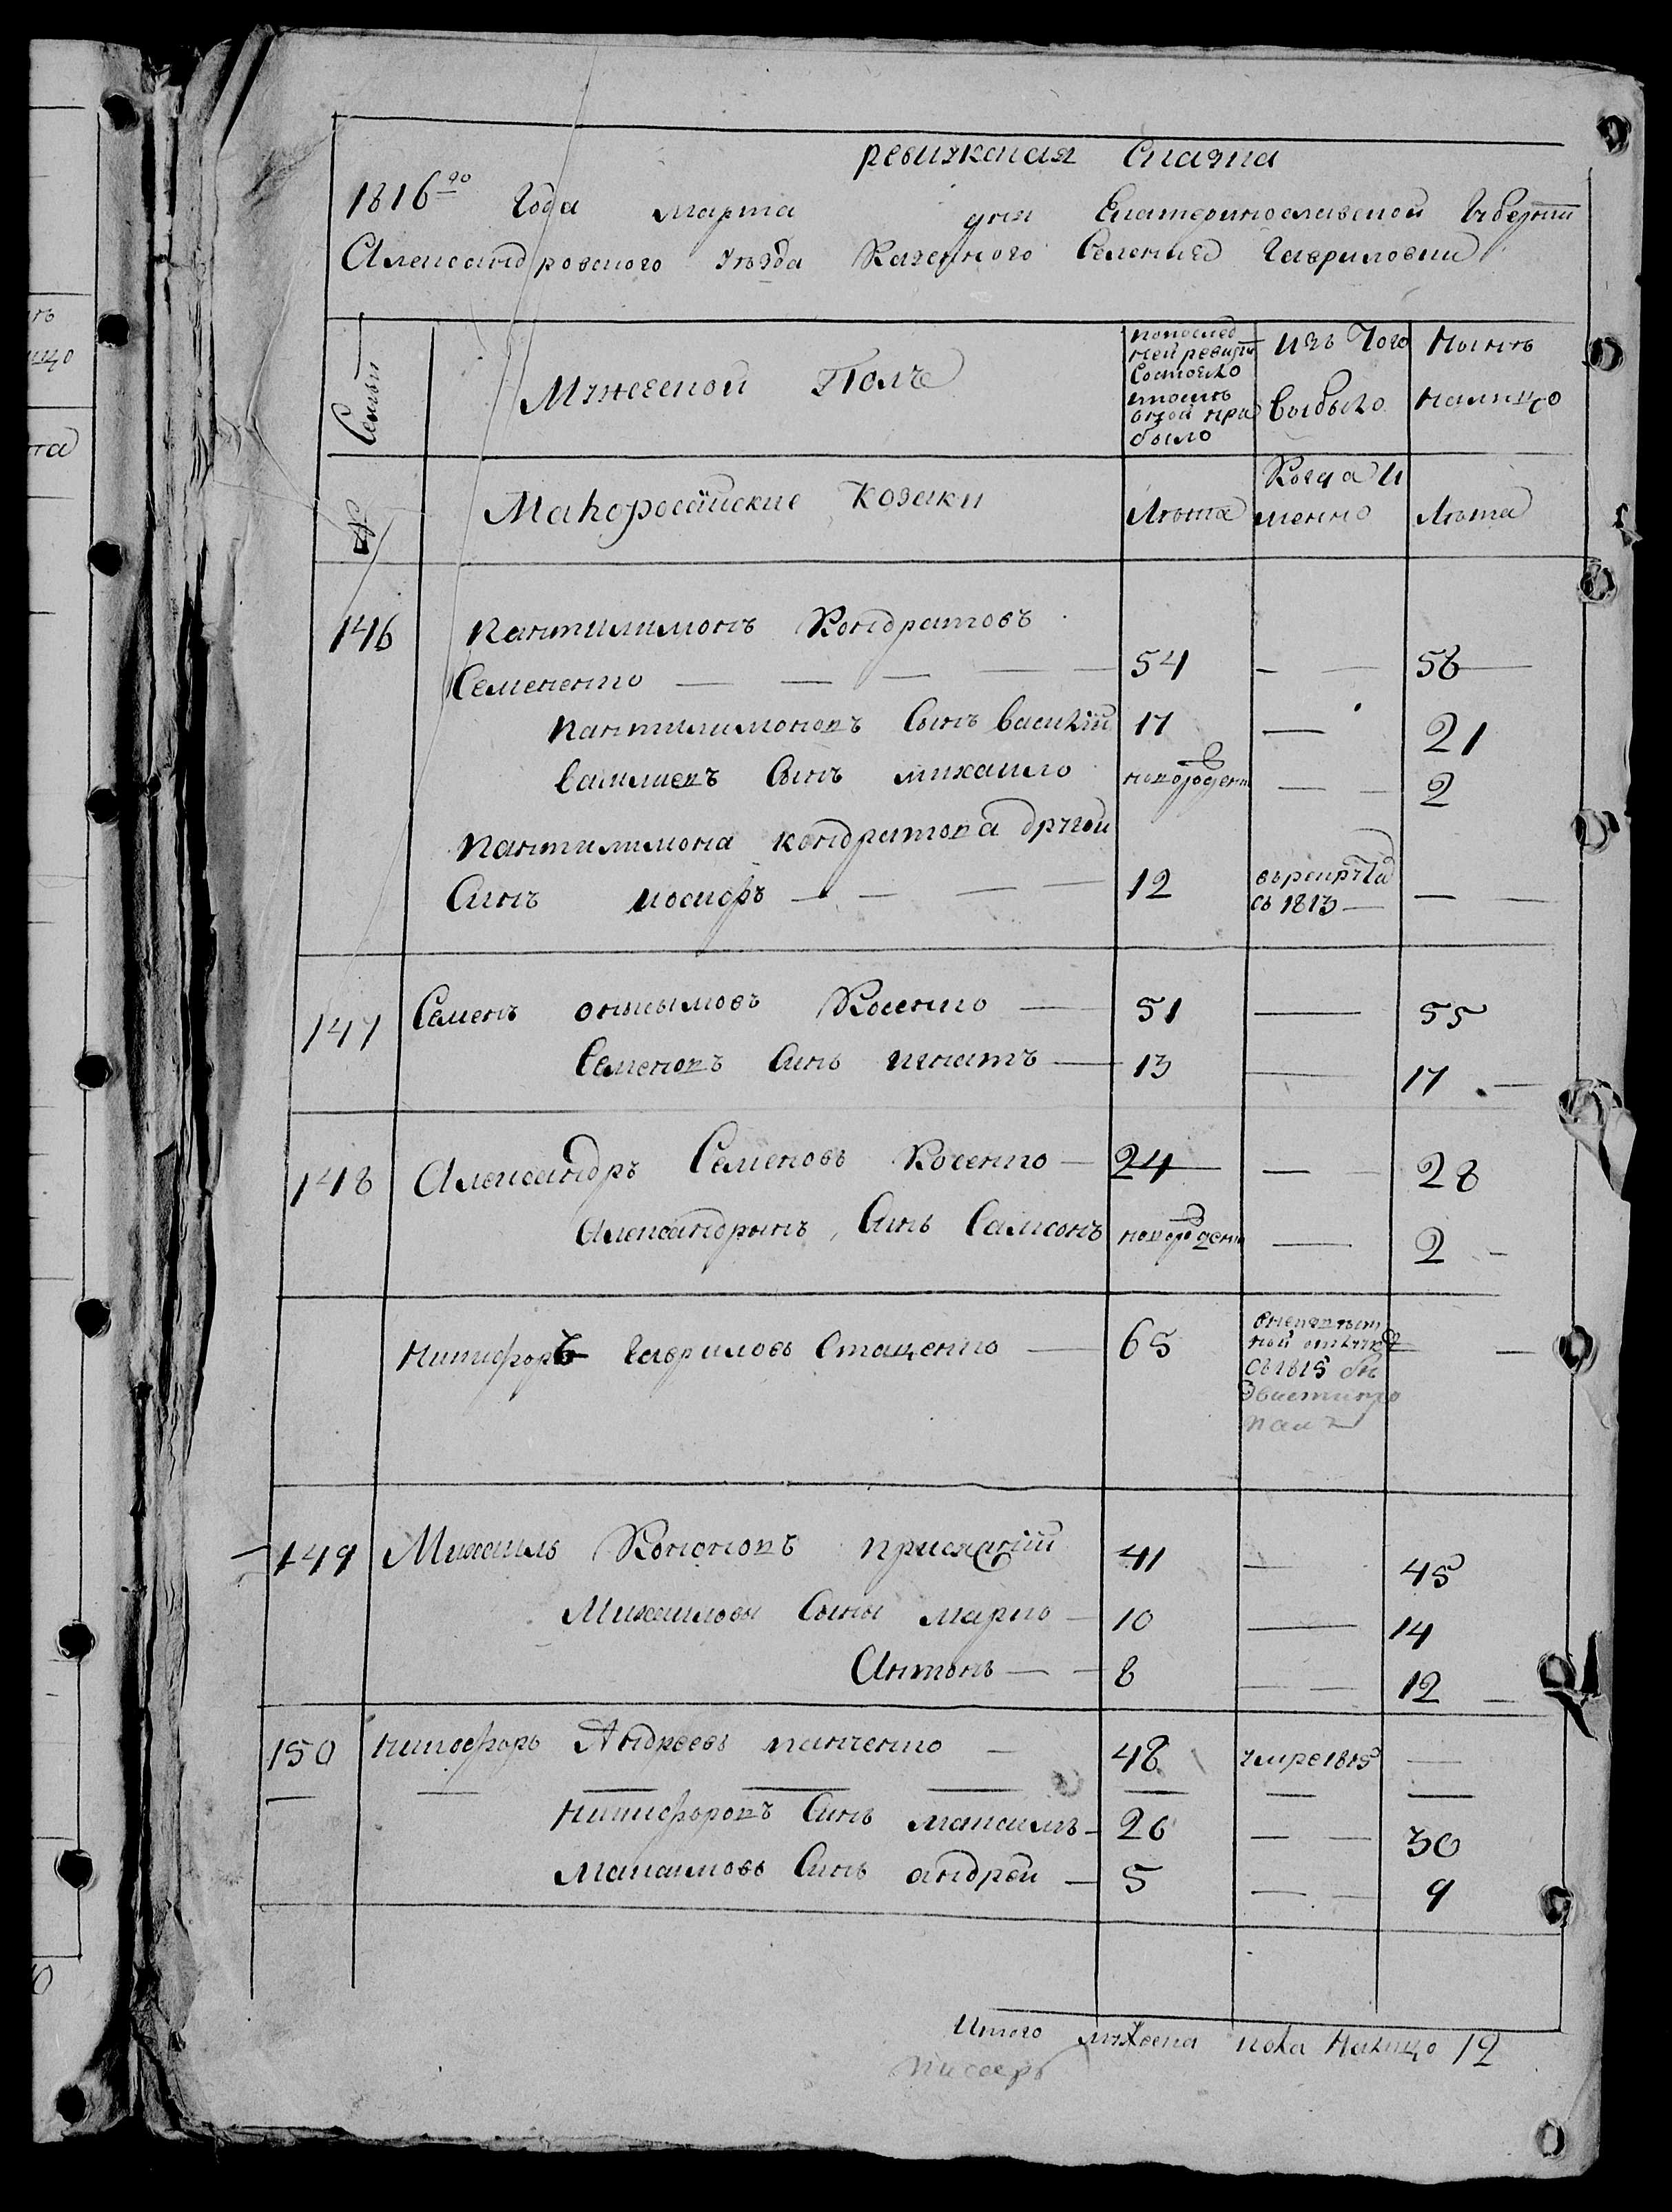 ревижская Сказка
1816го Года марта дня Екатеринославской Губернии
Александровского Уезда Казенного Селения Гавриловки
Семьи
Мужеской Полъ
по послед
ней ревизии
Состояло
и после
оной при
было
изъ Того
выбыло
Ныне
налицо
№
Малороссийские козаки
Лета
Когда И
менно
Лета
146 Пантилимонъ Кондратовъ
Семененко — — — — 54 — — 58
Пантилимоновъ Сынъ василий 17 — 21
василиевъ Сынъ михаило новорожден — — 2
Пантилимона кондратова другой
Синъ иосифъ — — — — 12 врекрута
съ 1813 — — —
147 Семенъ онисимовъ Косенко — 51 — 55
Семеновъ Синъ игнатъ — 13 — 17 —
148 Александръ Семеновъ Косенко — 24 — — 28
Александрынъ Синъ Самсонъ новорожден — 2 —
Никифоръ Гавриловъ Стаценко — 65
отлучке
съ 1815 —
149 Михаилъ Кононовъ присяжний 41 — 45
Михаиловы Сыны марко — 10 — 14
Антонъ — — 8 — — 12 —
150 Никифоръ Андреевъ панченко — 48 умре 1815 —
— — — — — — — —
Никифоровъ Синъ макаимъ — 26 — — 30
Макаимовъ Синъ андрей — 5 — — 9
Итого мужеска пола Налицо 12
писаръ